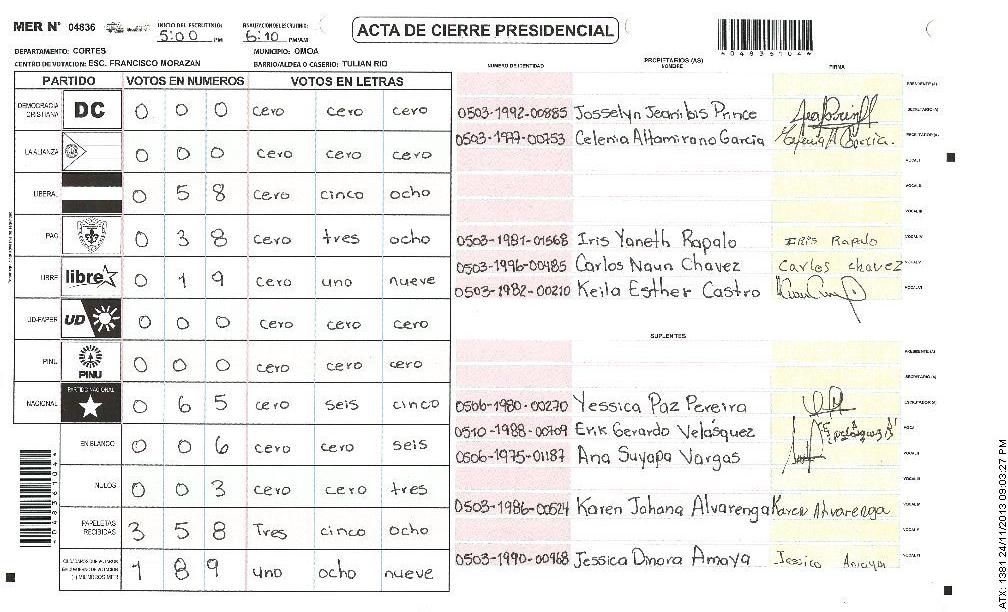 MER Nº 04836
INICIO DEL ESCRUTINIO:
5:00 PM
FINALIZACION ESCRUTINIO:
6:10 PM/AM
ACTA DE CIERRE PRESIDENCIAL
DEPARTAMENTO: CORTES
MUNICIPIO: OMOA
CENTRO DE VOTACION: ESC. FRANCISCO MORAZAN
BARRIO/ALDEA O CASERIO: TULIAN RIO
PARTIDO VOTOS EN NUMEROS VOTOS EN LETRAS
DEMOCRACIA CRISTIANA DC 0 0 0 cero cero cero
LA ALIANZA 0 0 0 cero cero cero
LIBERAL 0 5 8 cero cinco ocho
PAC 0 3 8 cero tres ocho
LIBRE libre 0 1 9 cero uno nueve
UD-FAPER UD 0 0 0 cero cero cero
PINU PINU 0 0 0 cero cero cero
NACIONAL PARTIDO NACIONAL 0 6 5 cero seis cinco
EN BLANCO 0 0 6 cero cero seis
NULOS 0 0 3 cero cero tres
PAPELETAS RECIBIDAS 3 5 8 Tres cinco ocho
1 8 9 uno ocho nueve
PROPIETARIOS (AS)
NUMERO DE IDENTIDAD NOMBRE FIRMA
PRESIDENTE (A)
0503-1992-00885 Josselyn Jeanibis Prince SECRETARIO (A)
0503-1997-00753 Celenia Altamirano Garcia ESCRUTADOR (A)
VOCAL I
VOCAL II
VOCAL III
0503-1981-01568 Iris Yaneth Rapalo Iris Rapalo VOCAL IV
0503-1996-00485 Carlos Naun Chavez Carlos chavez VOCAL V
0503-1982-00210 Keila Esther Castro VOCAL VI
SUPLENTES
PRESIDENTE (A)
SECRETARIO (A)
0506-1980-00270 Yessica Paz Pereira ESCRUTADOR (A)
0510-1988-00709 Erik Gerardo Velásquez VOCAL I
0506-1975-01187 Ana Suyapa Vargas VOCAL II
VOCAL III
0503-1986-00524 Karen Johana Alvarenga Karen Alvarenga VOCAL IV
VOCAL V
0503-1990-00968 Jessica Dinora Amaya Jessica Amaya VOCAL VI
ATX: 1381 24/11/2013 09:03:27 PM